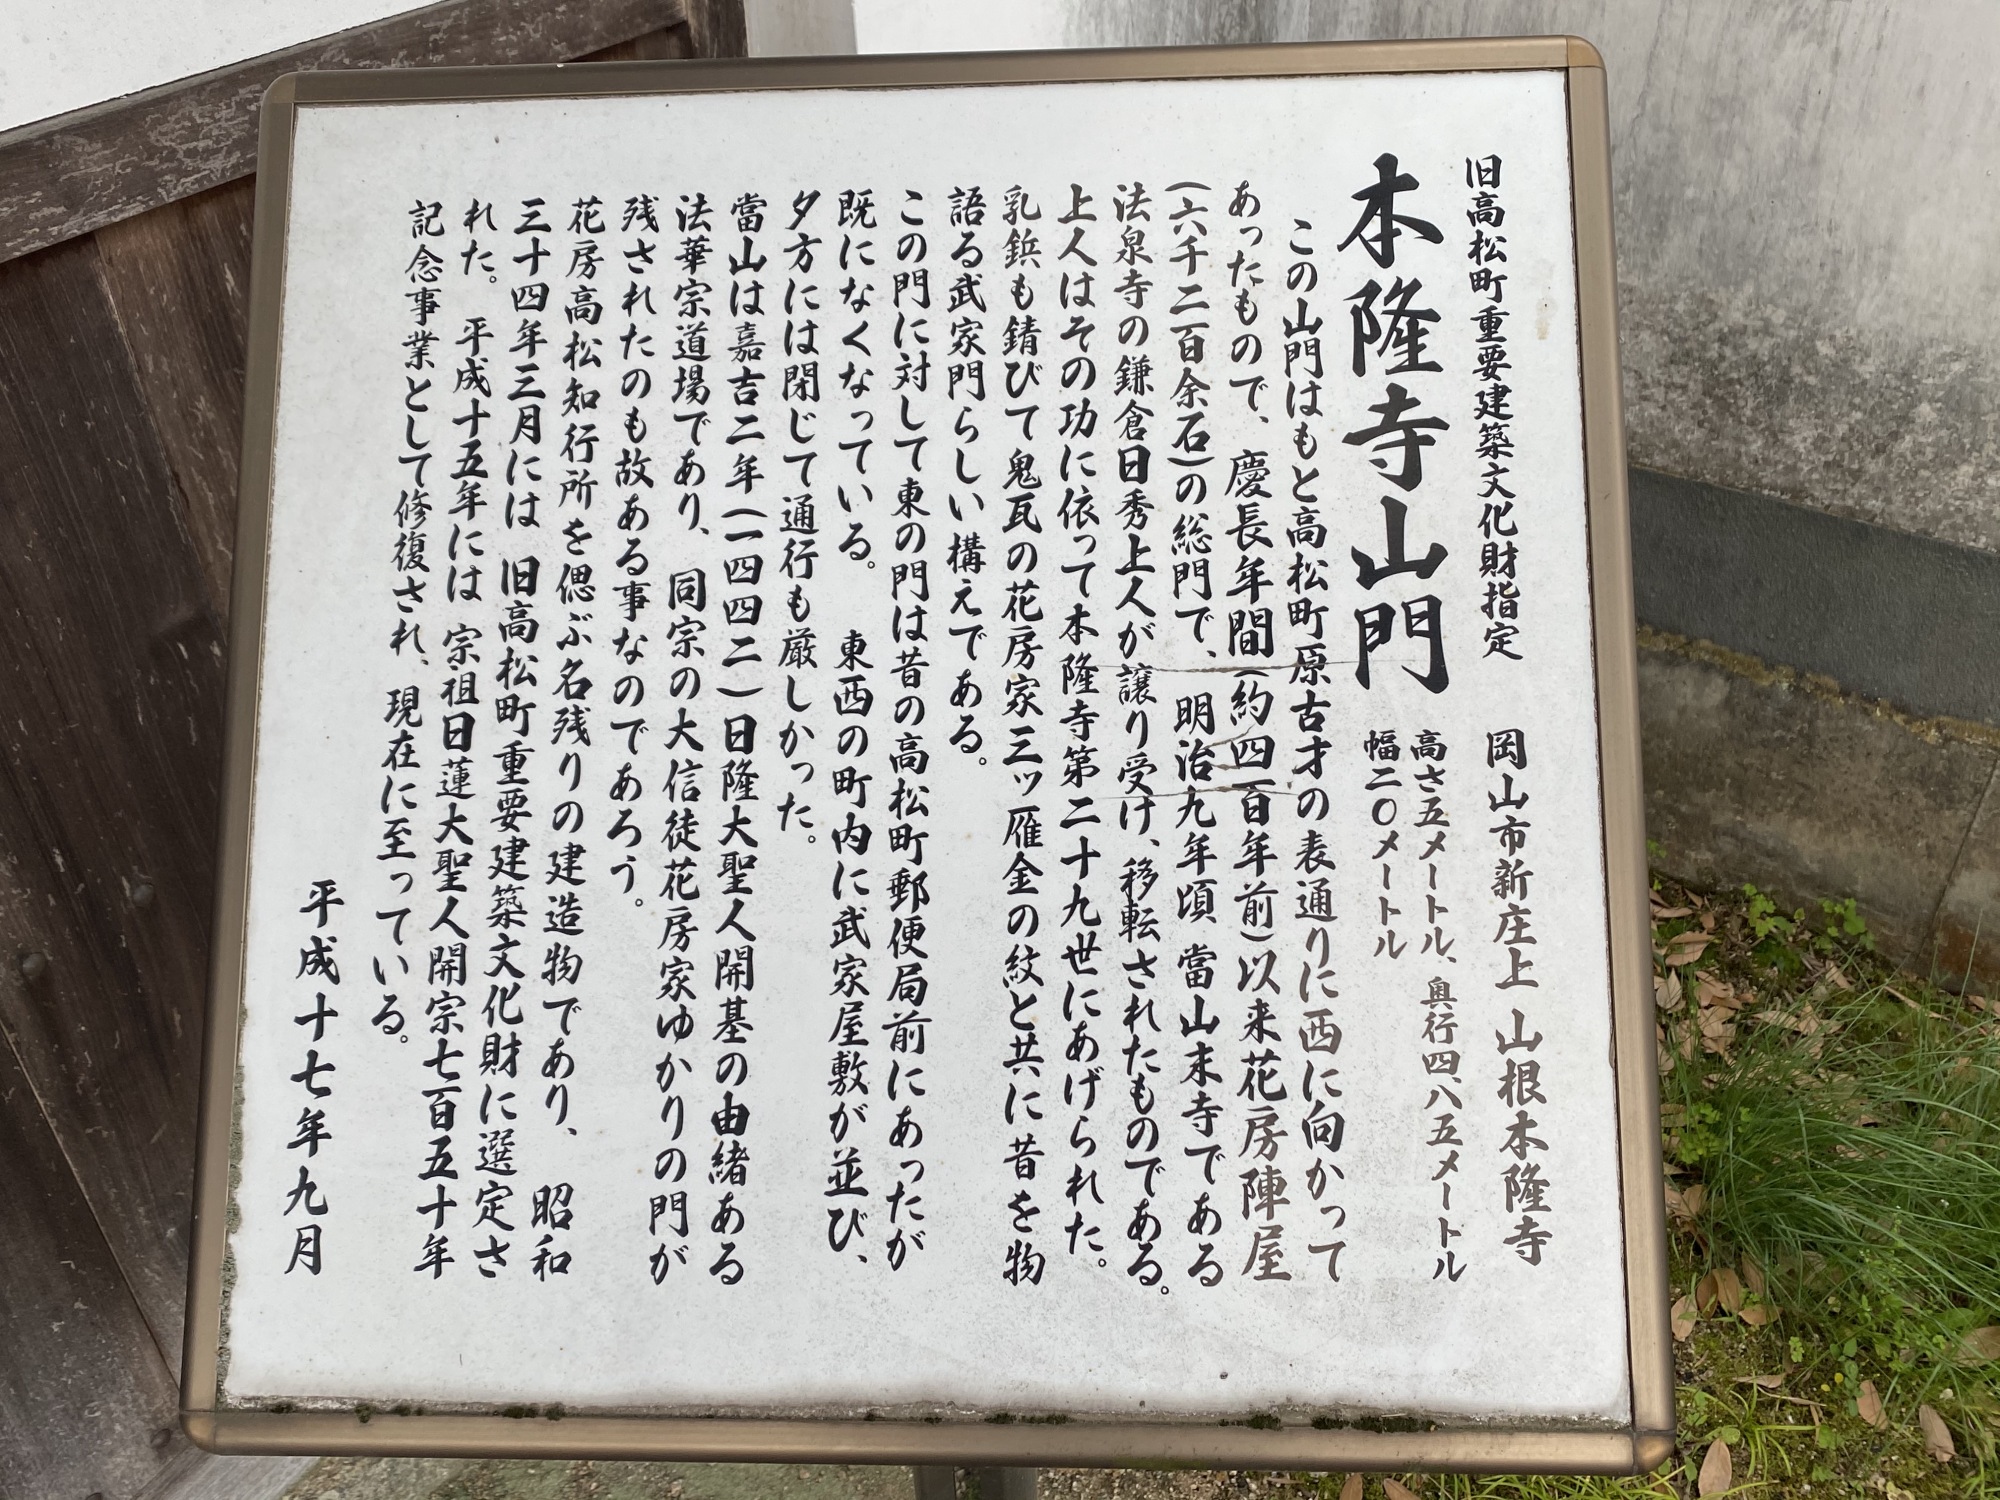 旧高松町重要建築文化財指定　岡山市新庄上　山根本隆寺
本隆寺山門
高さ五メートル、奥行四、八五メートル
幅二〇メートル
この山門はもと高松町原古才の表通りに西に向かって
あったもので、慶長年間(約四百年前)以来花房陣屋
(六千二百余石)の総門で、明治九年頃 當山末寺である
法泉寺の鎌倉日秀上人が譲り受け、移転されたものである。
上人はその功に依って本隆寺第二十九世にあげられた。
乳鋲も錆びて鬼瓦の花房家三ッ雁金の紋と共に昔を物
語る武家門らしい構えである。
この門に対して東の門は昔の高松町郵便局前にあったが
既になくなっている。　東西の町内に武家屋敷が並び、
夕方には閉じて通行も厳しかった。
當山は嘉吉二年(一四四二)日隆大聖人開基の由緒ある
法華宗道場であり、同宗の大信徒花房家ゆかりの門が
残されたのも故ある事なのであろう。
花房高松知行所を偲ぶ名残りの建造物であり、　昭和
三十四年三月には 旧高松町重要建築文化財に選定さ
れた。平成十五年には 宗祖日蓮大聖人開宗七百五十年
記念事業として修復され、現在に至っている。
平成十七年九月